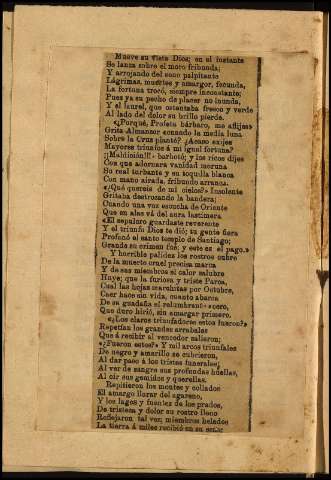 Mueve su vista Dios; en el instante
Se lanza sobre el moro fribunda;
Y arrojando del seno palpitante
Lágrimas, muertes y amargor, fecunda,
La fortuna trocó, siempre inconstante;
Pues ya su pecho de placer no inunda,
Y el laurel, que ostentaba fresco y verde
Al lado del dolor su brillo pierde.
«¿Porqué, Profeta bárbaro, me aflijes
Grita Almanzor cuando la media luna
Sobre la Cruz planté? ¿Acaso exijes
Mayores triunfos á mi igual fortuna?
¡¡Maldicion!!! barbotó; y los ricos dijes
Con que adornara vanidad moruna
Su real turbante y su toquilla blanca
Con mano airada, fribundo arranca.
«¿Qué quereis de mí cielos?» Insolente
Gritaba destrozando la bandera;
Cuando una voz escucha de Oriente
Que en alas vá del aura lastimera
«El sepulcro guardaste reverente
Y el triunfo Dios te dió; su gente fiera
Profanó el santo templo de Santiago;
Grande su crimen fué; y este es el pago.»
Y horrible palidez los rostros cubre
De la muerte cruel precisa marca
Y de sus miembros el calor salubre
Huye; que la furiosa y triste Parca,
Cual las hojas marchitas por Octubre,
Caer hace sin vida, cuanto abarca
De su guadaña el relumbrante acero,
Que duro hirió, sin amargar primero.
«¿Los claros triunfadores estos fueron?»
Repetian los grandes arrabales
Que á recibir al vencedor salieron;
«¿Fueron estos?» Y mil arcos triunfales
De negro y amarillo se cubrieron,
Al dar paso á los tristes funerales;
Al ver de sangre sus profundas huellas,
Al oir sus gemidos y querellas.
Repitieron los montes y collados
El amargo llorar del agareno,
Y los lagos y fuentes de los prados,
De tristeza y dolor su rostro lleno
Reflejaron tal vez; miembros helados
La tierra á miles recibió en su seno;